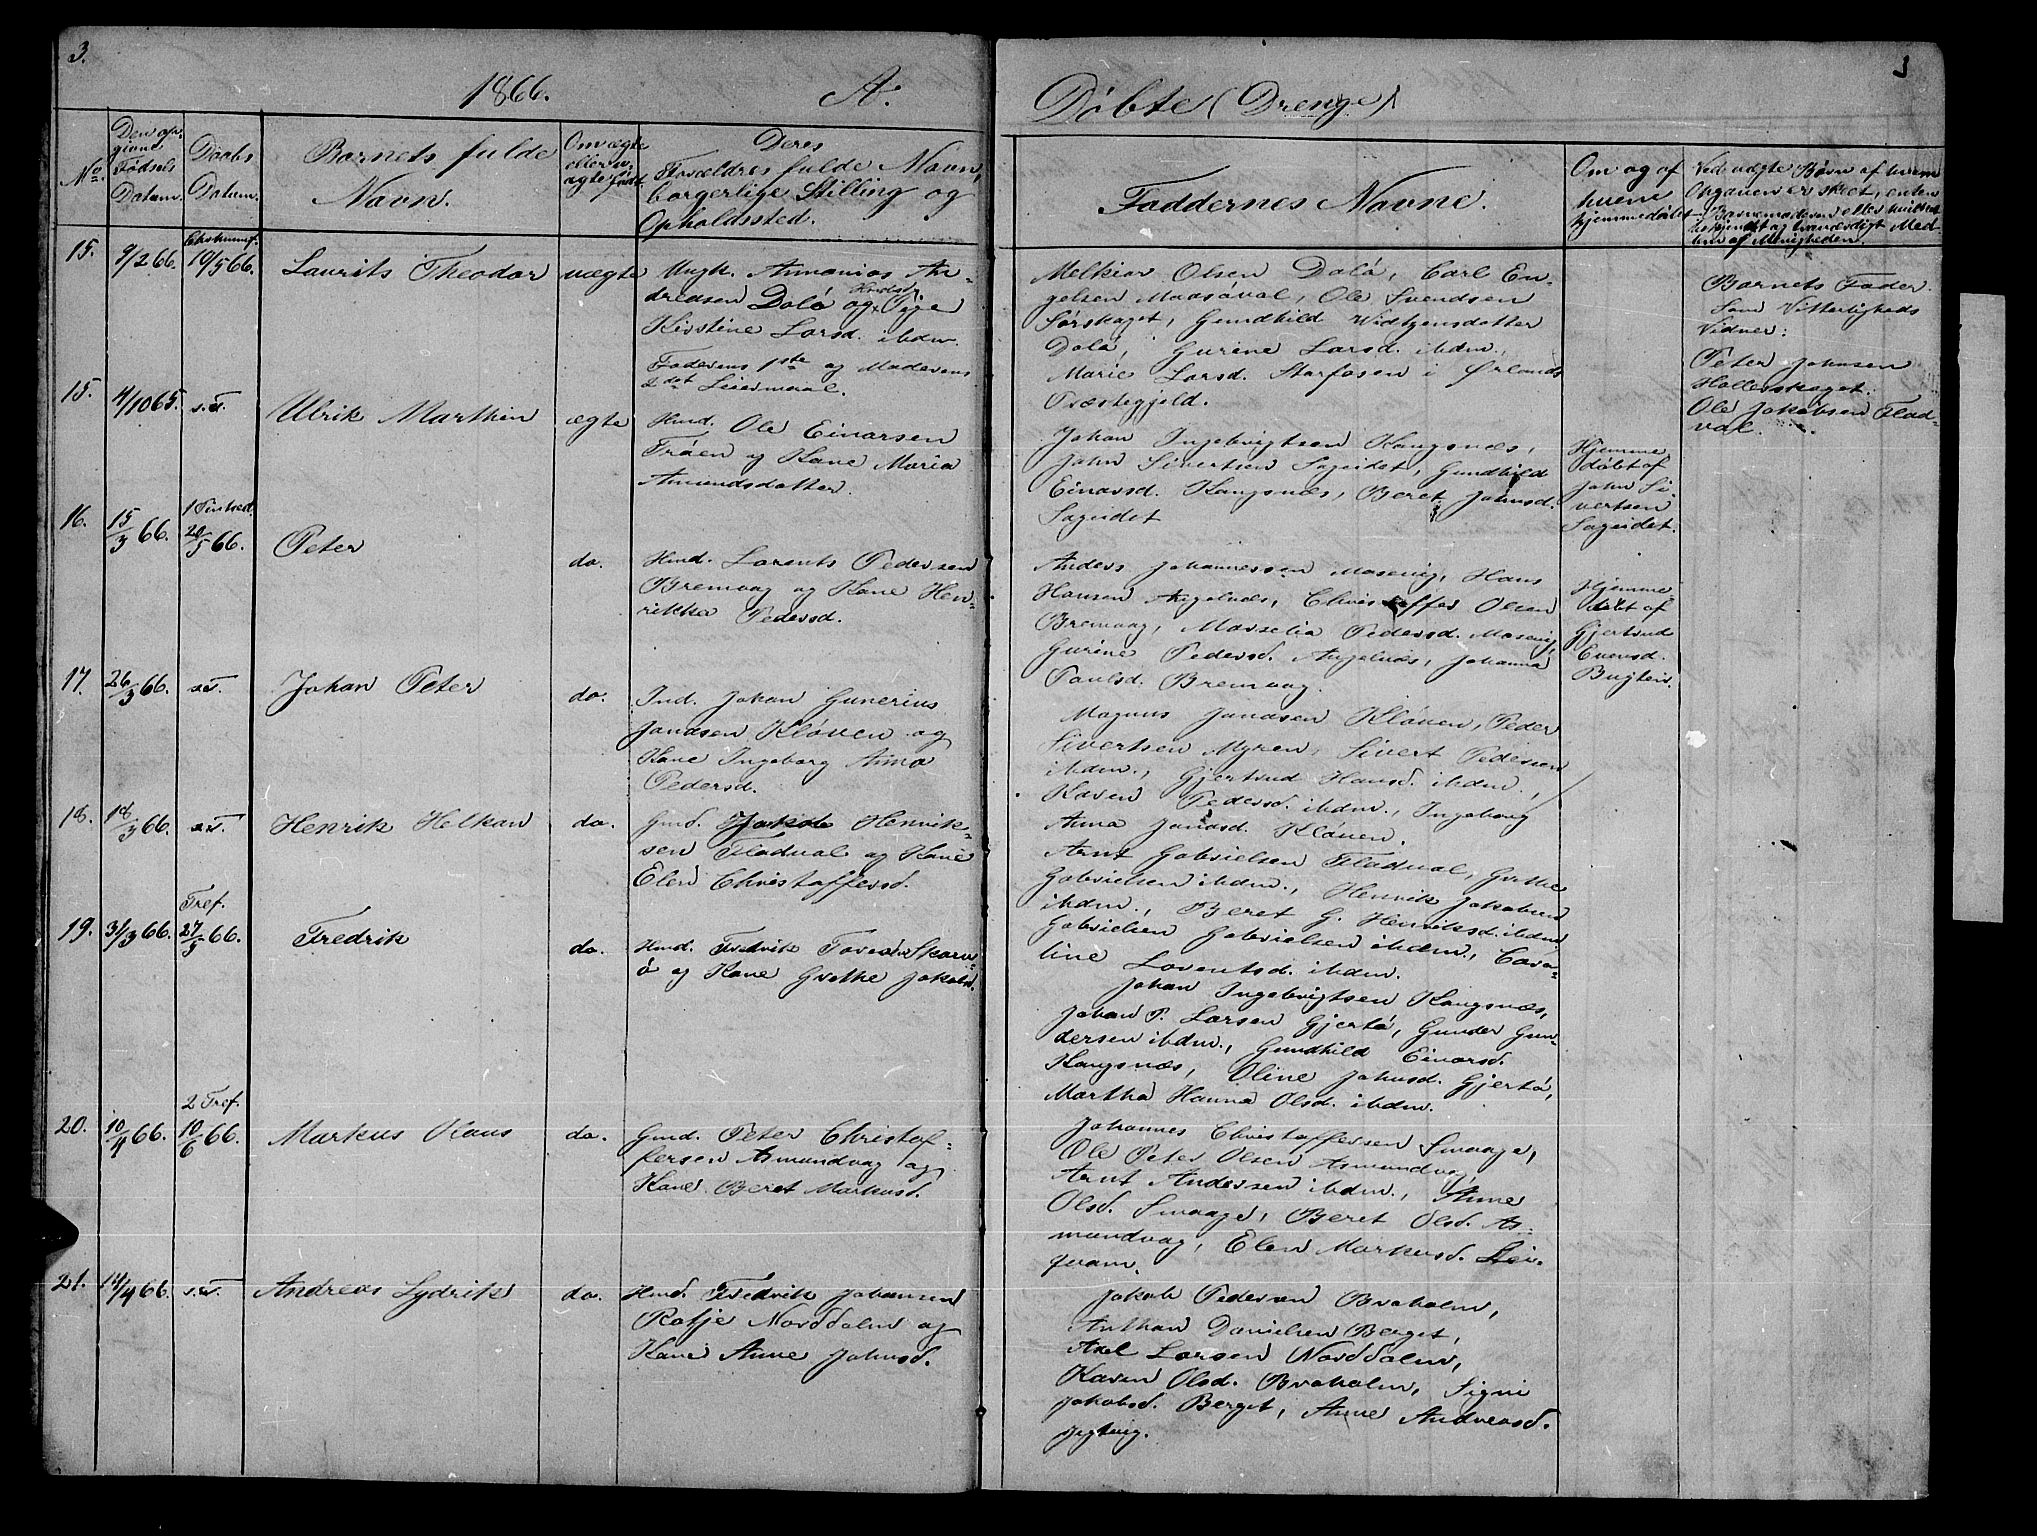 3.
1866. A.
Døbte (Drenge)
3
No.
Den op-
givne
Fødsels
Datum.
Daabs
Datum.
Barnets fulde
Navn.
Om ægte
eller u-
ægte født.
Deres
Forældres fulde Navn,
borgerlige Stilling og
Opholdssted.
Faddernes Navne.
Om og af
hvem
hjemmedøbt
Ved uægte Børn af hvem
Opgaven er skeet, enten
Barnemoderen eller hvilket
bekjendt og troværdigt Med-
lem af Menigheden.
15. 9/2 66. 19/5 66. Laurits Theodor uægte
Ungk. Ammonias An-
dredsen Dolø og Pige
Kirstine Larsd. ibdm.
Faderens 1ste og Moderens
2det Leiermaal.
Melkior Olsen Dolø, Carl En-
gelsen Maasøval, Ole Svendsen
Sørskaget, Gundhild
Dolø, Gurine Larsd. ibdm.,
Marie Larsd. Starfosen i Ørlands
Præstegjeld.
Barnets Fader.
Som Vitterligheds
Vidner:
Peter Johnsen
Hallersskaget.
Ole Jakobsen Flad-
val.
15. 4/10 65. s.d. Ulrik Marthin ægte
Hmd. Ole Einarsen
Trøen og Kone Maria
Amundsdatter.
Johan Ingebrigtsen Kongsnæs,
John Sivertsen Sageidet, Gundhild
Einarsd. Kongsnæs, Beret Johnsd.
Sageidet
Hjemme
døbt af
John Si-
vertsen
Sageidet.
16. 15/3 66. 20/5 66. Peter do.
Hmd. Lorents Pedersen
Bremvag og Kone Hen-
rikke Pedersd.
Anders Johannessen Masevig, Hans
Hansen Angelnæs, Christoffer Olsen
Bremvag, Marselia Pedersd. Masevig,
Gurine Pedersd. Angelnæs, Johanna
Paulsd. Bremvag.
Hjemme-
døbt af
Gjertrud
Evensd.
17. 26/3 66. s.d. Johan Peter do.
Ind. Johan Gunerius
Jondsen Kløven og
Kone Ingeborg Anna
Pedersd.
Magnus Jondsen Kløven, Peder
Sivertsen Myren, Sivert Pedersen
ibdm., Gjertrud Hansd. ibdm.,
Karen Pedersd. ibdm., Ingeborg
Anna Jondsd. Kløven.
18. 18/3 66. s.d. Henrik Helkan do.
Gmd. Jakob Henrik-
sen Fladval og Kone
Elen Christoffersd.
Arnt Gabrielsen Fladval, Grethe
Gabrielsen ibdm., Henrik Jakobsen
ibdm., Beret G. Henriksd. ibdm.
Gabrielsen Gabrielsen ibdm., Caro-
line Lorentsd. ibdm.
19. 31/3 66. Tref. 27/5 66. Fredrik do.
Hmd. Fredrik
ø og Kone Grethe Jakobsd.
Johan Ingebrigtsen Kongsnæs,
Johan P. Larsen Gjertø, Gunder Gun-
dersen ibdm., Gundhild Einarsd.
Kongsnæs, Oline Johnsd. Gjertø,
Martha Hanna Olsd. ibdm.
20. 10/4 66. 2 Tref. 10/6 66. Markus Klaus do.
Gmd. Peter Christof-
fersen Asmundvag og
Kone Beret Markusd.
Johannes Christoffersen Smaage,
Ole Peter Olsen Asmundvag,
Arnt Andersen ibdm., Anne
Olsd. Smaage, Beret Olsd. As-
mundvag, Elen Markusd.
21. 14/4 66. s.d. Andreas Lydrik do.
Hmd. Fredrik Johansen
Rotje Norddalen og
Kone Anne Johnsd.
Jakob Pedersen Braholm,
Anthon Danielsen Berget,
Axel Larsen Norddalen,
Karen Olsd. Braholm, Signi
Jakobsd. Berget, Anne Andreasd.
Jegtvig.